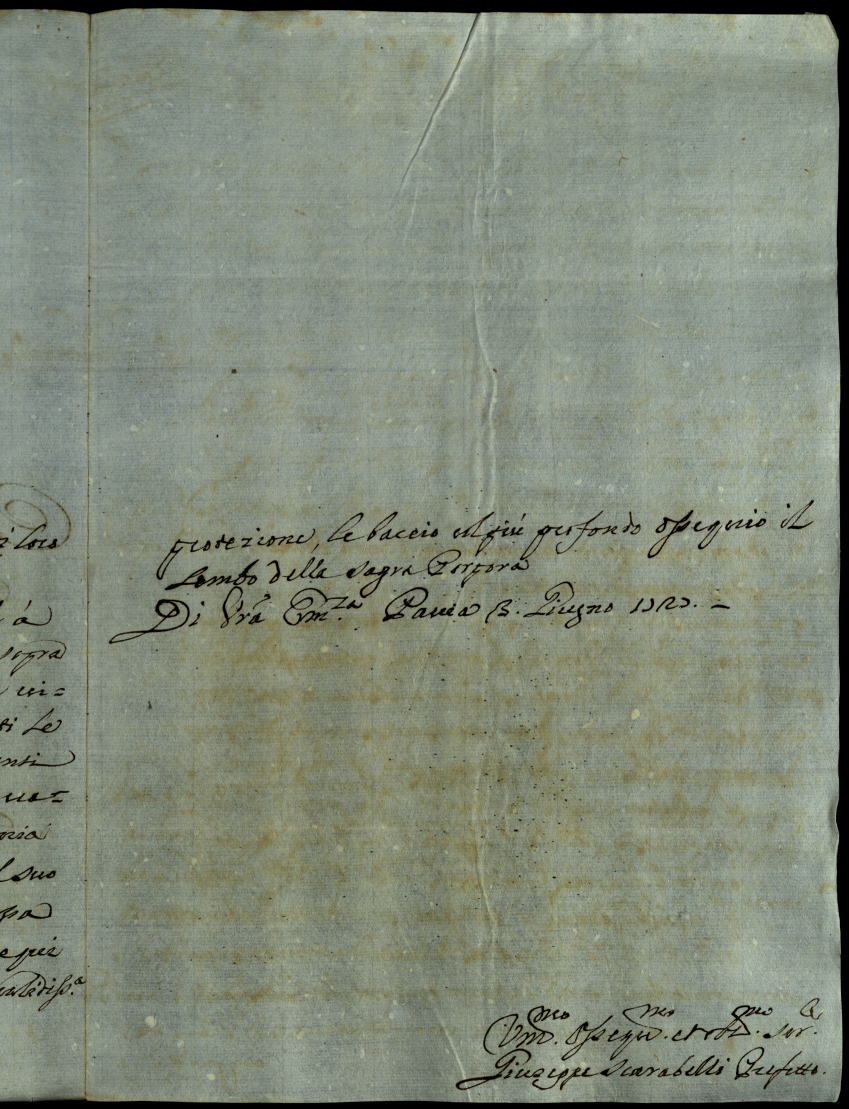 i loro
à
sopra
ui=
ti le
ensi
ria
l suo
e per
protezione, le baccio col più profondo ossequio il
Lembo della Sagra Porpora
Di Vrã Em.za Pavia 3. Giugno
Vm.mo Osseqm.mo et obl.mo Ser.e
Giuseppe Scarabelli Prefetto.